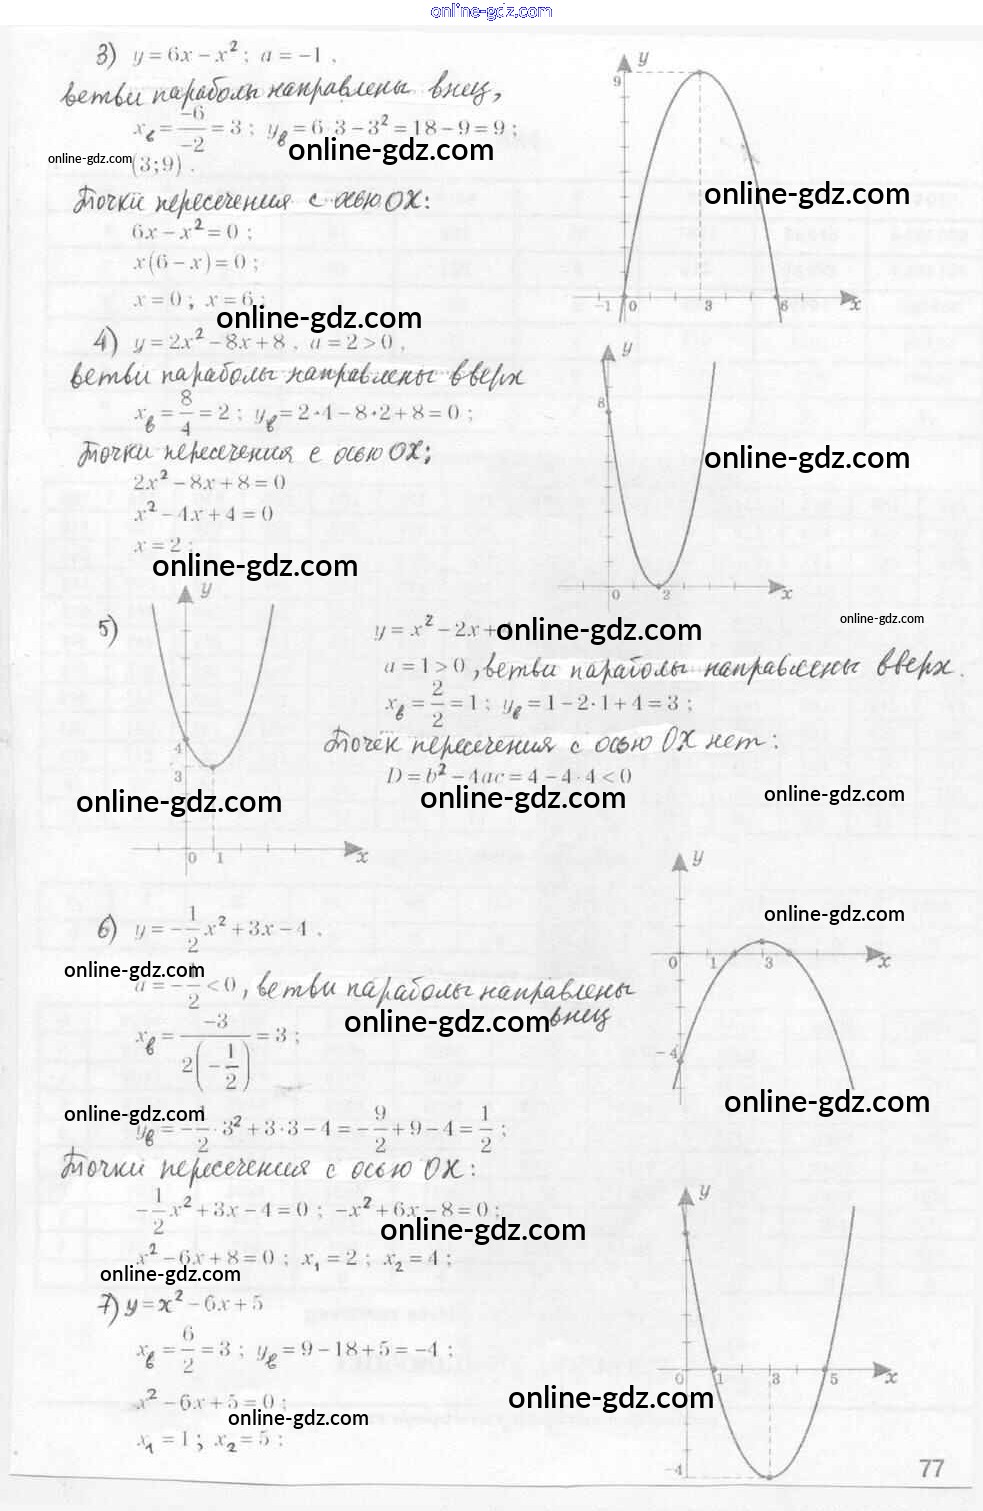 online-gdz.com
3) y = 6x − x²; a = −1,
ветви параболы направлены вниз,
xв = −6/−2 = 3; yв = 6·3 − 3² = 18 − 9 = 9;
online-gdz.com
online-gdz.com (3;9).
online-gdz.com
Точки пересечения с осью OX:
6x − x² = 0;
x(6 − x) = 0;
x = 0; x = 6;
online-gdz.com
y 9 −1 0 3 6 x
4) y = 2x² − 8x + 8, a = 2 > 0,
ветви параболы направлены вверх
xв = 8/4 = 2; yв = 2·4 − 8·2 + 8 = 0;
Точки пересечения с осью OX;
online-gdz.com
2x² − 8x + 8 = 0
x² − 4x + 4 = 0
x = 2;
online-gdz.com
y 8 0 2 x
5) y = x² − 2x +
online-gdz.com
online-gdz.com
a = 1 > 0, ветви параболы направлены вверх.
xв = 2/2 = 1; yв = 1 − 2·1 + 4 = 3;
Точек пересечения с осью OX нет:
D = b² − 4ac = 4 − 4·4 < 0
online-gdz.com
online-gdz.com
online-gdz.com
y 4 3 0 1 x
6) y = −1/2 x² + 3x − 4,
online-gdz.com
online-gdz.com
a = −1/2 < 0, ветви параболы направлены
вниз
online-gdz.com
xв = −3/2(−1/2) = 3;
y 0 1 3 x −4
online-gdz.com
online-gdz.com
yв = −1/2·3² + 3·3 − 4 = −9/2 + 9 − 4 = 1/2;
Точки пересечения с осью OX:
−1/2 x² + 3x − 4 = 0; −x² + 6x − 8 = 0;
online-gdz.com
x² − 6x + 8 = 0; x₁ = 2; x₂ = 4;
online-gdz.com
7) y = x² − 6x + 5
xв = 6/2 = 3; yв = 9 − 18 + 5 = −4;
x² − 6x + 5 = 0;
online-gdz.com
online-gdz.com
x₁ = 1; x₂ = 5;
y 0 1 3 5 x −4
77